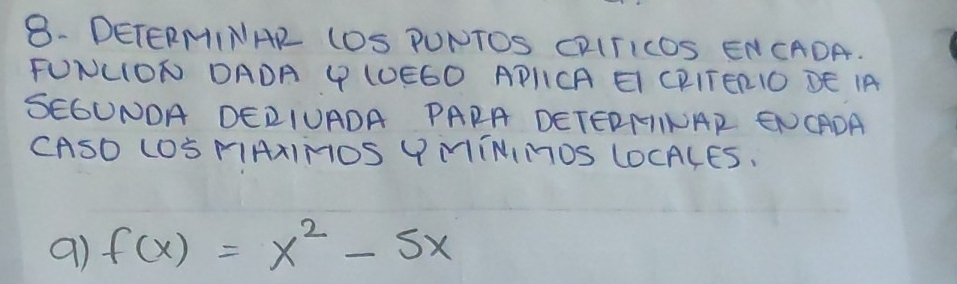 8- DETERMINAR LOS PUNTOS CRITICOS EN CADA.
FUNCION DADA Y LUEGO APLICA El CRITERIO DE lA
SEGUNDA DERIVADA PARA DETERMINAR EN CADA
CASO LOS MAXIMOS Y MÍNIMOS LOCALES.
a) f(x) = x² - 5x